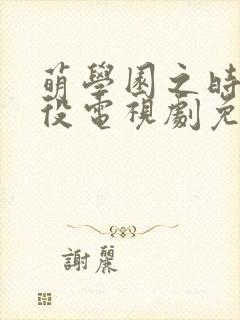 萌學園之時
役電視劇免
謝麗